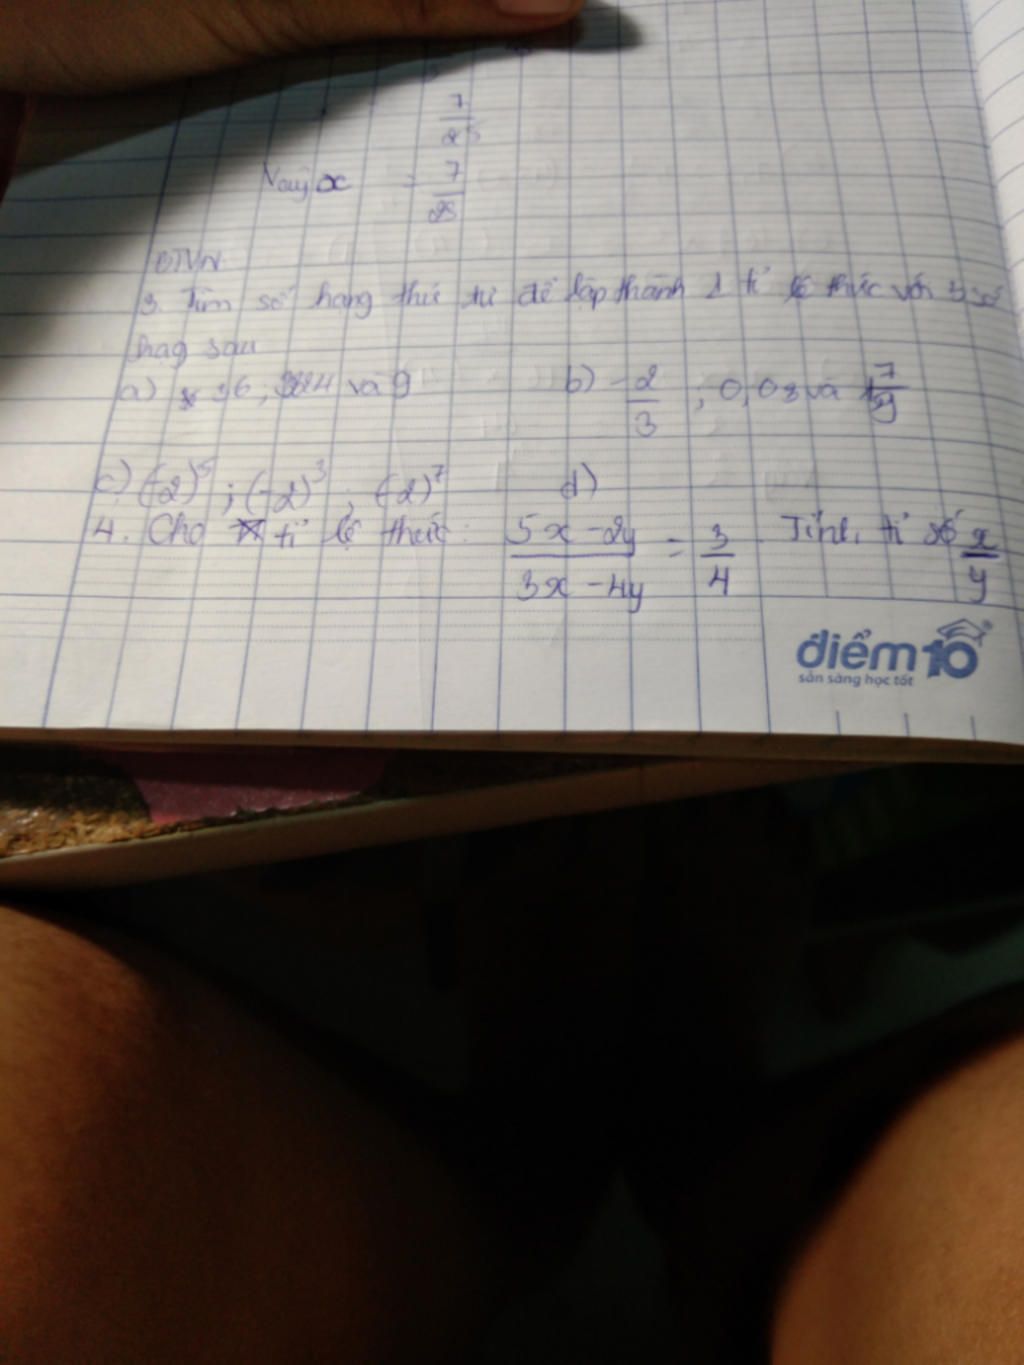 7
25
Vậy x = 7
25
BTVN
3. Tìm số hạng thứ tư để lập thành 1 tỉ lệ thức với 3 số
hạg sau
a) 36; và 9 b) -2/3 ; 0,08 và
c) (-2)^5 ; (-2)^3 ; (-2)^7 d)
4. Cho tỉ lệ thức: 5x - 2y / 3x - 4y = 3/4 Tính tỉ số x/y
điểm10
sẵn sàng học tốt